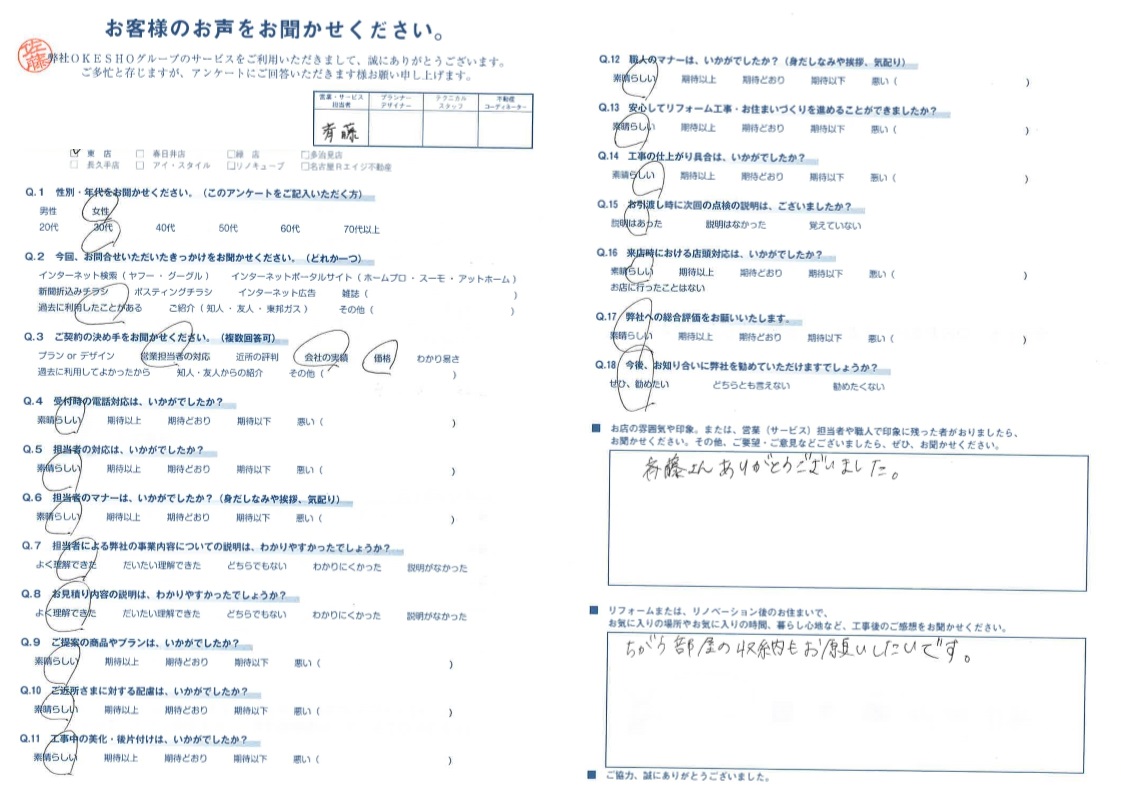 お客様のお声をお聞かせください。
佐藤
弊社OKESHOグループのサービスをご利用いただきまして、誠にありがとうございます。
ご多忙と存じますが、アンケートにご回答いただきます様お願い申し上げます。
営業・サービス担当者 プランナーデザイナー テクニカルスタッフ 不動産コーディネーター
斉藤
☑ 東店 □ 春日井店 □緑店 □多治見店
□ 長久手店 □ アイ・スタイル □リノキューブ □名古屋Rエイジ不動産
Q.1 性別・年代をお聞かせください。(このアンケートをご記入いただく方)
男性 女性
20代 30代 40代 50代 60代 70代以上
Q.2 今回、お問合せいただいたきっかけをお聞かせください。(どれか一つ)
インターネット検索(ヤフー・グーグル) インターネットポータルサイト(ホームプロ・スーモ・アットホーム)
新聞折込みチラシ ポスティングチラシ インターネット広告 雑誌( )
過去に利用したことがある ご紹介(知人・友人・東邦ガス) その他( )
Q.3 ご契約の決め手をお聞かせください。(複数回答可)
プラン or デザイン 営業担当者の対応 近所の評判 会社の実績 価格 わかり易さ
過去に利用してよかったから 知人・友人からの紹介 その他( )
Q.4 受付時の電話対応は、いかがでしたか?
素晴らしい 期待以上 期待どおり 期待以下 悪い( )
Q.5 担当者の対応は、いかがでしたか?
素晴らしい 期待以上 期待どおり 期待以下 悪い( )
Q.6 担当者のマナーは、いかがでしたか?(身だしなみや挨拶、気配り)
素晴らしい 期待以上 期待どおり 期待以下 悪い( )
Q.7 担当者による弊社の事業内容についての説明は、わかりやすかったでしょうか?
よく理解できた だいたい理解できた どちらでもない わかりにくかった 説明がなかった
Q.8 お見積り内容の説明は、わかりやすかったでしょうか?
よく理解できた だいたい理解できた どちらでもない わかりにくかった 説明がなかった
Q.9 ご提案の商品やプランは、いかがでしたか?
素晴らしい 期待以上 期待どおり 期待以下 悪い( )
Q.10 ご近所さまに対する配慮は、いかがでしたか?
素晴らしい 期待以上 期待どおり 期待以下 悪い( )
Q.11 工事中の美化・後片付けは、いかがでしたか?
素晴らしい 期待以上 期待どおり 期待以下 悪い( )
Q.12 職人のマナーは、いかがでしたか?(身だしなみや挨拶、気配り)
素晴らしい 期待以上 期待どおり 期待以下 悪い( )
Q.13 安心してリフォーム工事・お住まいづくりを進めることができましたか?
素晴らしい 期待以上 期待どおり 期待以下 悪い( )
Q.14 工事の仕上がり具合は、いかがでしたか?
素晴らしい 期待以上 期待どおり 期待以下 悪い( )
Q.15 お引渡し時に次回の点検の説明は、ございましたか?
説明はあった 説明はなかった 覚えていない
Q.16 来店時における店頭対応は、いかがでしたか?
素晴らしい 期待以上 期待どおり 期待以下 悪い( )
お店に行ったことはない
Q.17 弊社への総合評価をお願いいたします。
素晴らしい 期待以上 期待どおり 期待以下 悪い( )
Q.18 今後、お知り合いに弊社を勧めていただけますでしょうか?
ぜひ、勧めたい どちらとも言えない 勧めたくない
■ お店の雰囲気や印象。または、営業(サービス)担当者や職人で印象に残った者がおりましたら、
お聞かせください。その他、ご要望・ご意見などございましたら、ぜひ、お聞かせください。
斉藤さんありがとうございました。
■ リフォームまたは、リノベーション後のお住まいで、
お気に入りの場所やお気に入りの時間、暮らし心地など、工事後のご感想をお聞かせください。
ちがう部屋の収納もお願いしたいです。
■ ご協力、誠にありがとうございました。